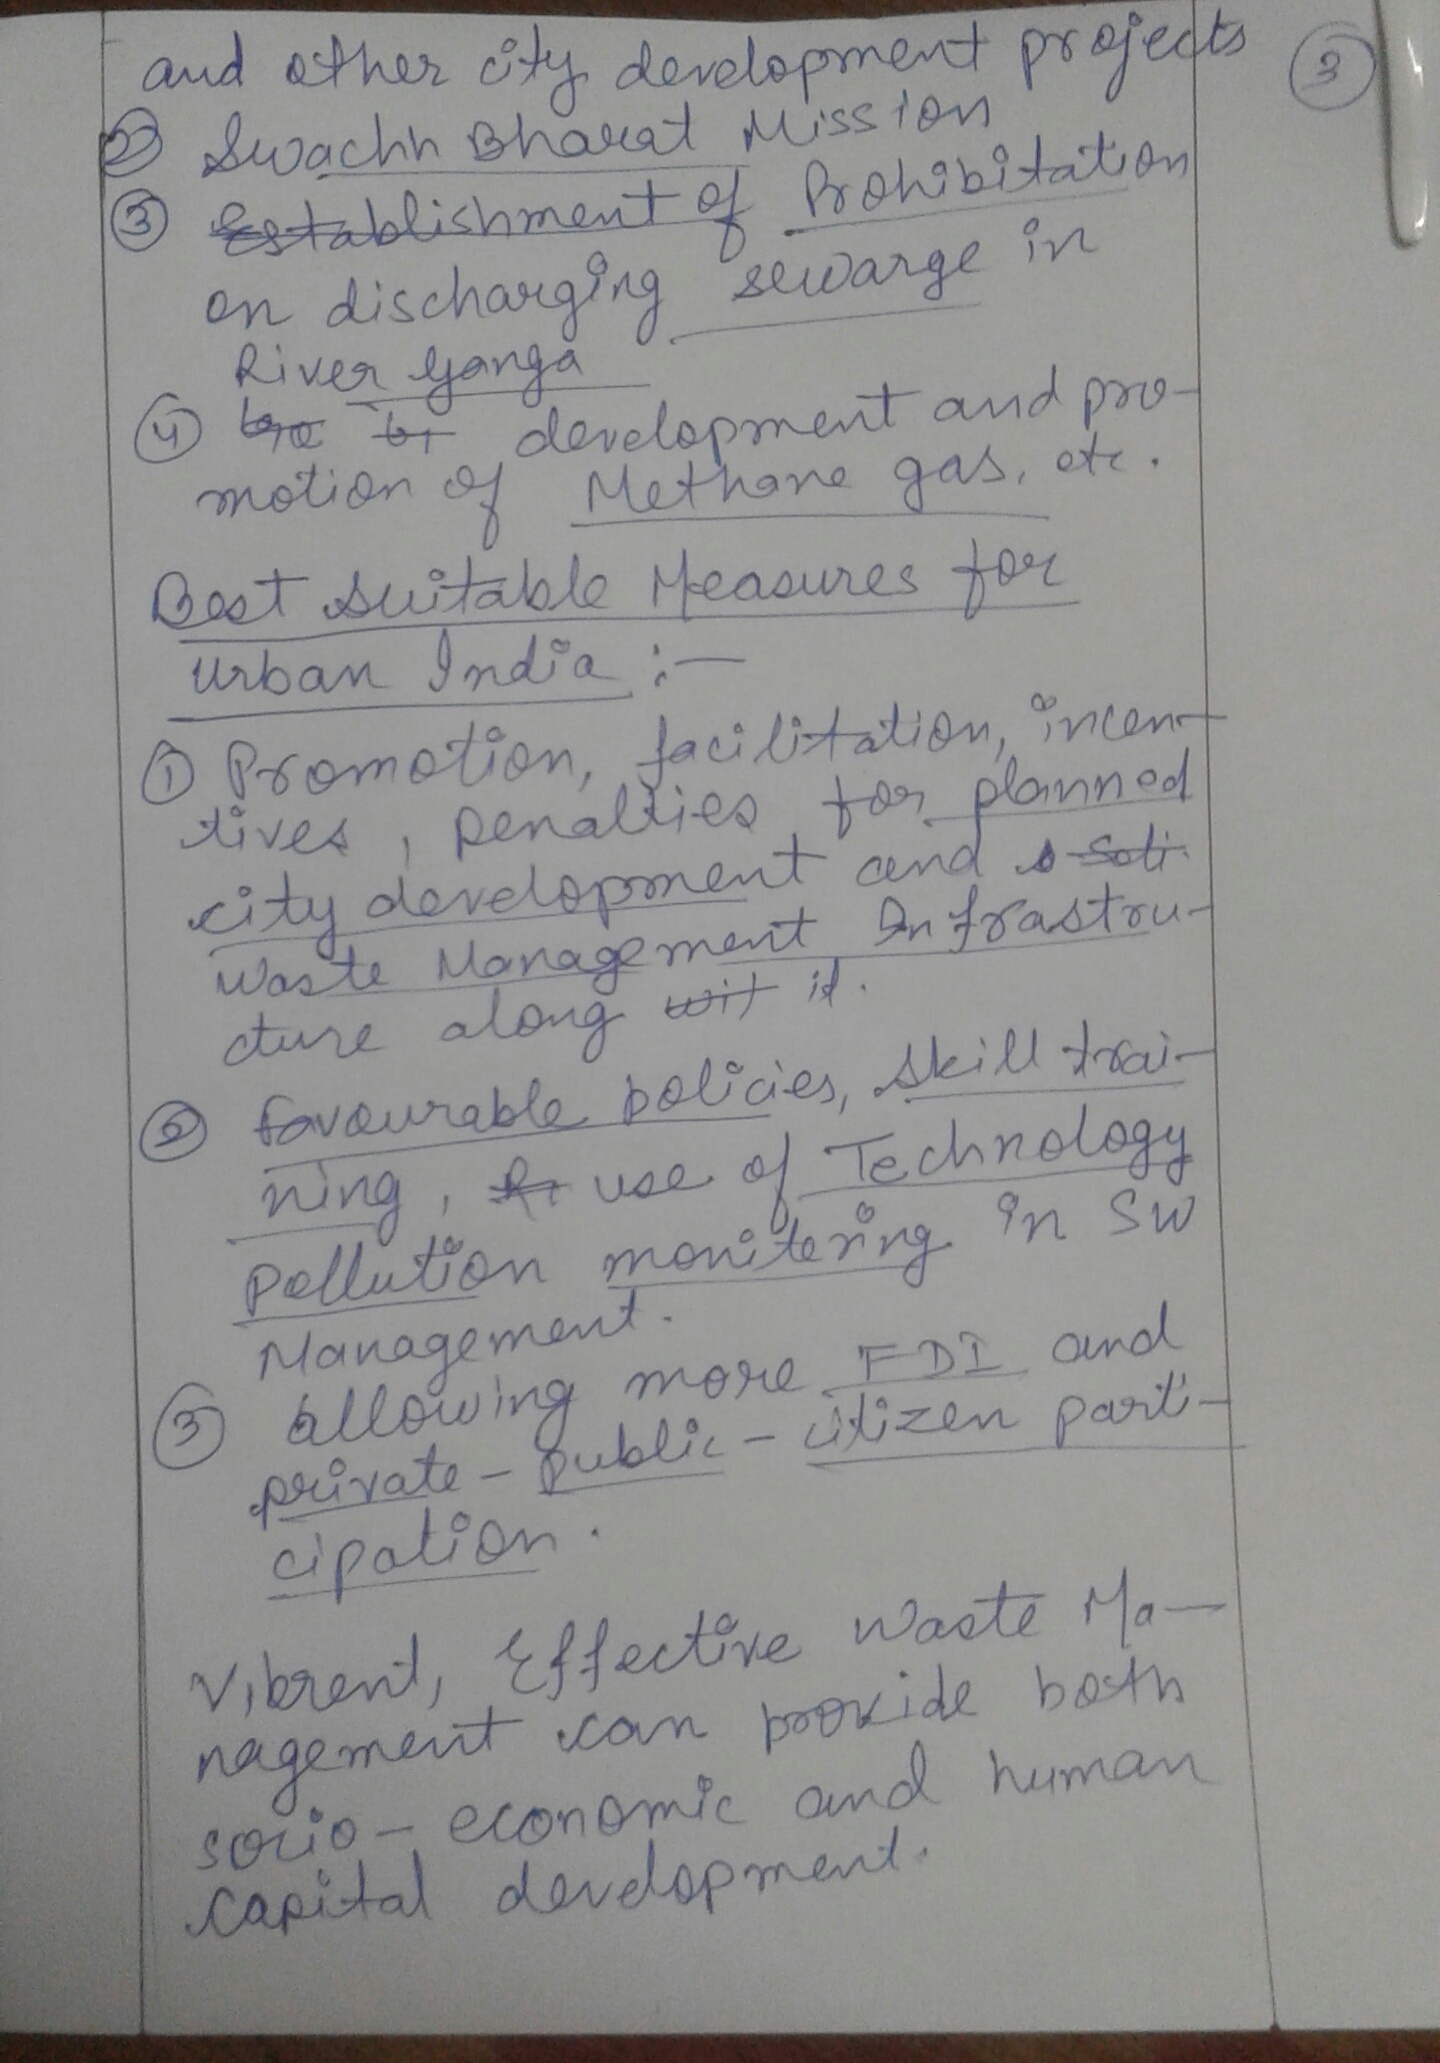 and other city development projects
3
② Swachh Bharat Mission
③ Establishment of Prohibitation
on discharging sewarge in
River Ganga
④ development and pro-
motion of Methane gas, etc.
Best Suitable Measures for
Urban India :-
① Promotion, facilitation, incen-
tives, penalties for planned
city development and
Waste Management Infrastru-
cture along it.
② favourable policies, skill trai-
ning, use of Technology
Pollution monitering in SW
Management.
③ allowing more FDI and
private - public - citizen parti-
cipation.
Vibrent, Effective Waste Ma-
nagement can provide both
socio - economic and human
capital development.